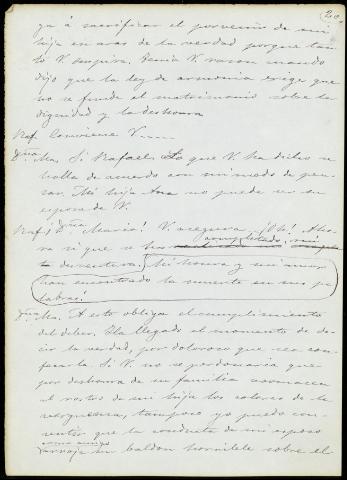 20
ga á sacrificar el porvenir de mi
hija en aras de la verdad porque tan-
to V. suspira. Tenia V. razon cuando
dijo que la ley de armonia exige que
no se funde el matrimonio sobre la
dignidad y la deshonra
Raf. Conviene V.....
Dña Ma. Si Rafael. Lo que V. ha dicho se
halla de acuerdo con mi modo de pen-
sar. Mi hija Ana no puede ser su
esposa de V.
Raf. ¡Dña Maria! V. asegura, ¡Oh! Aho-
ra si que se completado, mi
desventura. Mi honra y mi amor
han encontrado la muerte en sus pa-
labras!
Dña Ma. A esto obliga el cumplimiento
del deber. Ha llegado el momento de de-
cir la verdad, por doloroso que sea con-
fesarla. Si V. no se perdonaria que
por deshonra de su familia asomacen
al rostro de mi hija los colores de la
verguenza, tampoco yo puedo con-
sentir que la conducta de mi esposo
como amigo
arroje un baldon horrible sobre el